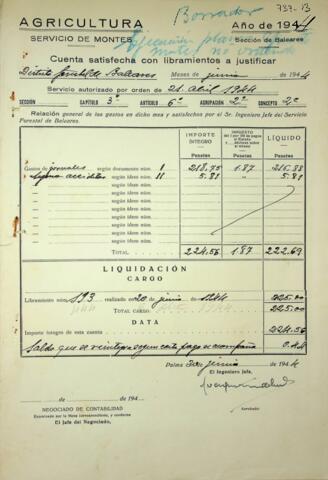 737-B
Borrador
AGRICULTURA
Año de 1944
SERVICIO DE MONTES
Sección de Baleares
Ejecución
montes no
Cuenta satisfecha con libramientos a justificar
Distrito forestal de Baleares Meses de junio de 1944
Servicio autorizado por orden de 21 Abril 1944
SECCIÓN CAPÍTULO 3º ARTÍCULO 6º AGRUPACIÓN 2º CONCEPTO 2º
Relación general de los gastos en dicho mes y satisfechos por el Sr. Ingeniero Jefe del Servicio
Forestal de Baleares.
IMPORTE ÍNTEGRO LÍQUIDO
Pesetas Pesetas Pesetas
Gastos de jornales según documento núm. I 218,75 1'87 216,88
accidentes según ídem núm. II 5.81 " 5.81
según ídem núm.
según ídem núm.
según ídem núm.
según ídem núm.
según ídem núm.
según ídem núm.
TOTAL 224.56 1'87 222.69
LIQUIDACIÓN
CARGO
Libramiento núm. 193 realizado en 20 de junio de 1944 225.00
TOTAL CARGO 225.00
DATA
Importe íntegro de esta cuenta 224.56
Saldo que se reintegra según carta pago se acompaña 0.44
Palma 30 de junio de 1944
El Ingeniero Jefe,
de de 194
NEGOCIADO DE CONTABILIDAD
Examinada por la Mesa correspondiente, y conforme
El Jefe del Negociado,
Aprobado: